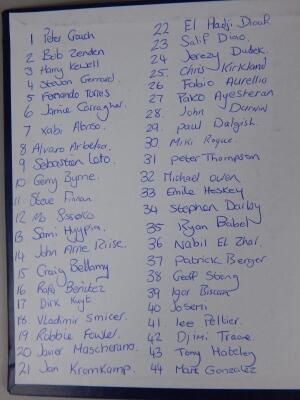 1 Peter Crouch
2 Bob Zenden
3 Harry Kewell
4 Steven Gerrard
5 Fernando Torres
6 Jamie Carragher
7 Xabi Alonso
8 Alvaro Arbeloa
9 Sebastian Loto
10 Gerry Byrne
11 Steve Finnan
12 Mo Sissoko
13 Sami Hyypia
14 John Arne Riise
15 Craig Bellamy
16 Rafa Benitez
17 Dirk Kuyt
18. Vladimir Smicer
19 Robbie Fowler
20 Javier Mascherano
21 Jan Kromkamp
22 El Hadji Diouf
23 Salif Diao
24 Jerezy Dudek
25. Chris Kirkland
26 Fabio Aurellio
27 Paco Ayesteran
28. John Durnin
29. Paul Dalglish
30 Miki Roque
31 Peter Thompson
32 Michael Owen
33 Emile Heskey
34 Stephen Darby
35 Ryan Babel
36 Nabil El Zhar
37 Patrick Berger
38 Geoff Strong
39 Igor Biscan
40 Josemi
41. Lee Peltier
42 Djimi Traore
43 Tony Hateley
44 Mark Gonzalez